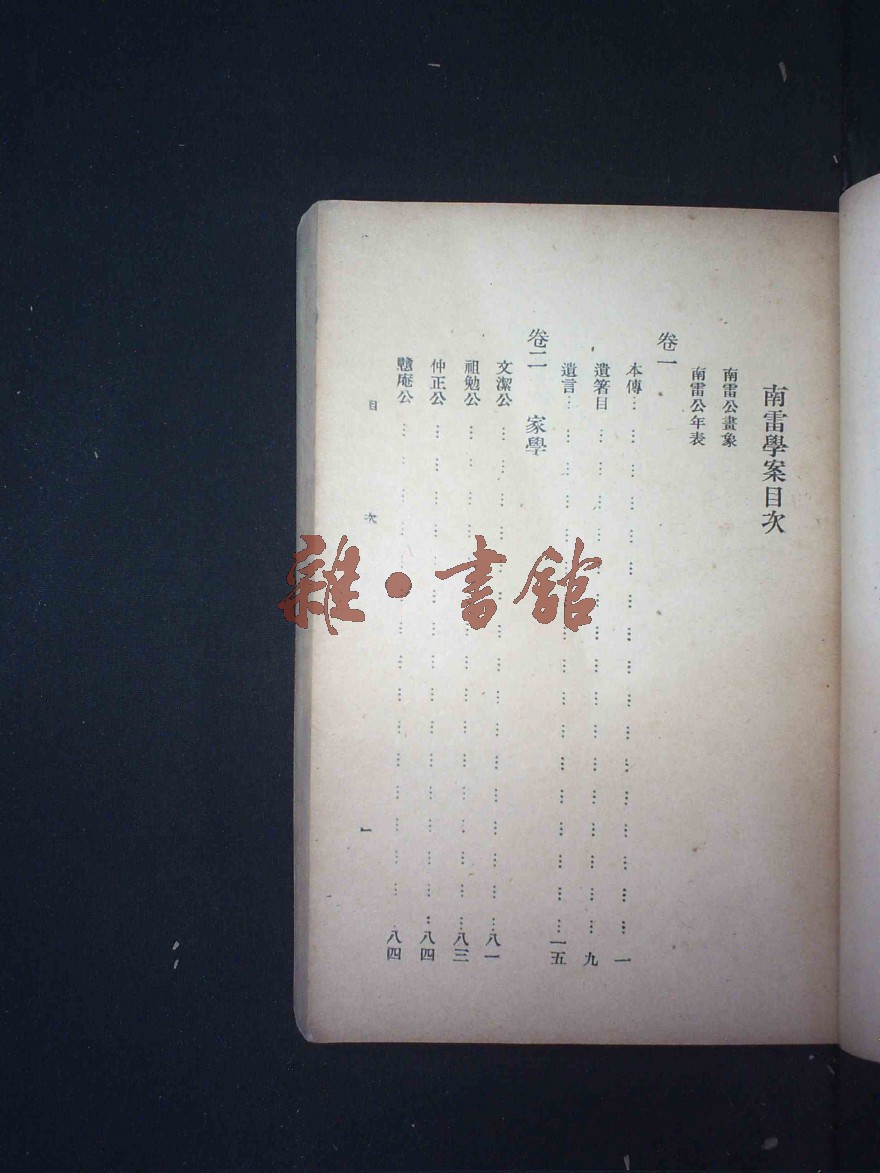 南雷學案目次
南雷公畫象
南雷公年表
卷一
本傳……一
遺箸目……九
遺言……一五
卷二 家學
文潔公……八一
祖勉公……八三
仲正公……八四
戇庵公……八四
目 次 一
雜·書館